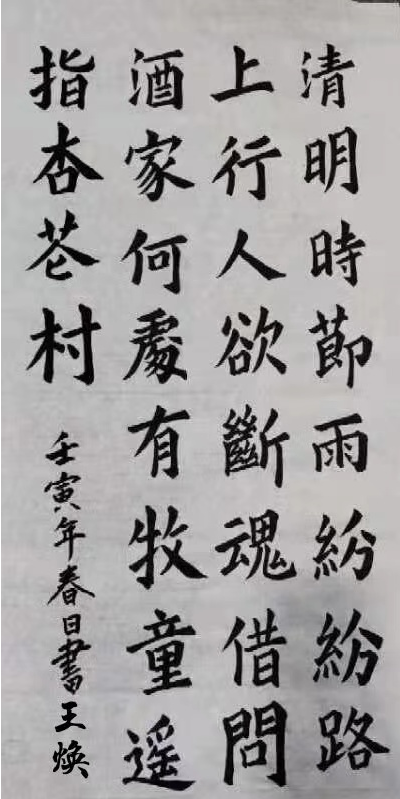 清明時節雨紛紛路
上行人欲斷魂借問
酒家何處有牧童遥
指杏花村
壬寅年春日書王焕